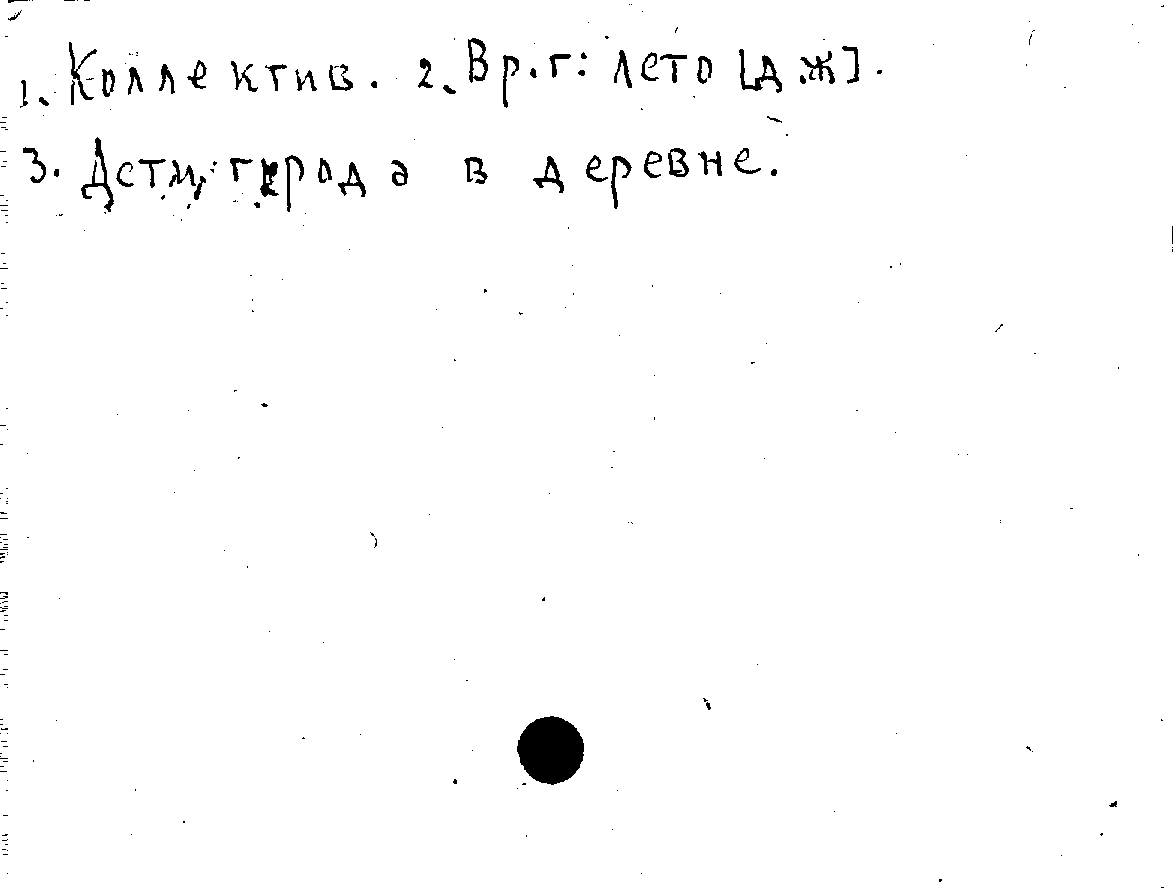 1. Коллектив. 2. Вр.г: лето [дж].
3. Дети: города в деревне.